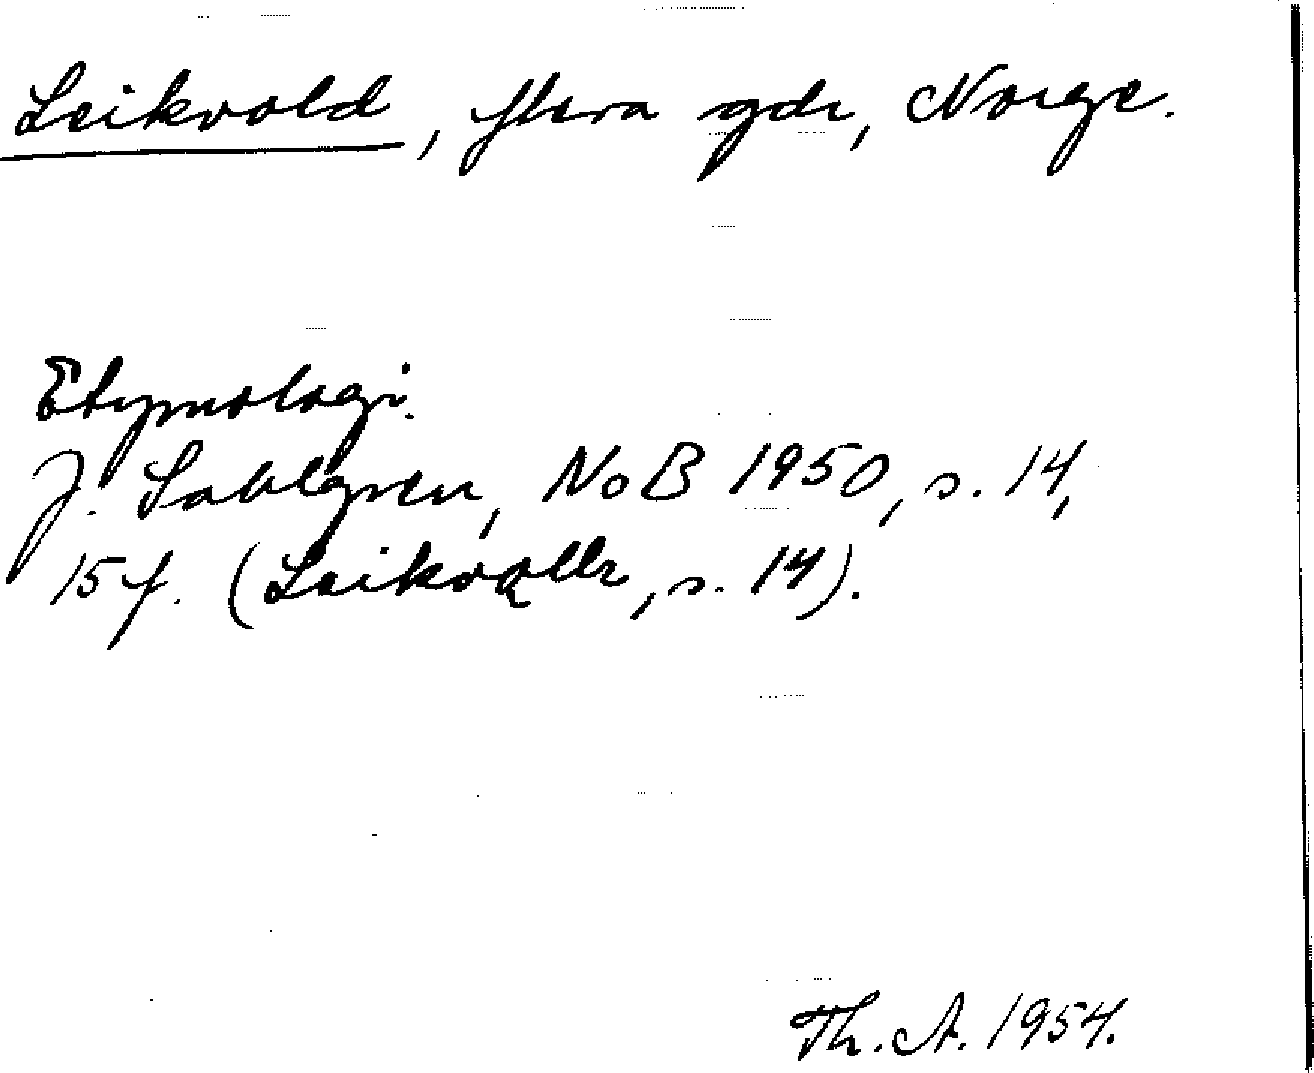 Leikvold, flera gdr, Norge.
Etymologi.
J. Sahlgren, NoB 1950, s. 14,
15 f. (Leikvǫllr, s. 14).
Th. A. 1954.